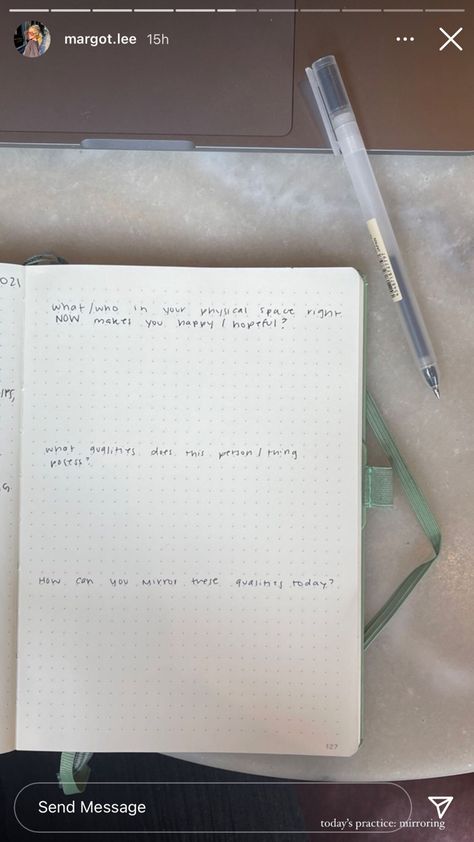 margot.lee 15h
021
what/who in your physical space right
NOW makes you happy/hopeful?
what qualities does this person/thing
posess?
HOW can you mirror these qualities today?
127
Send Message
today's practice: mirroring